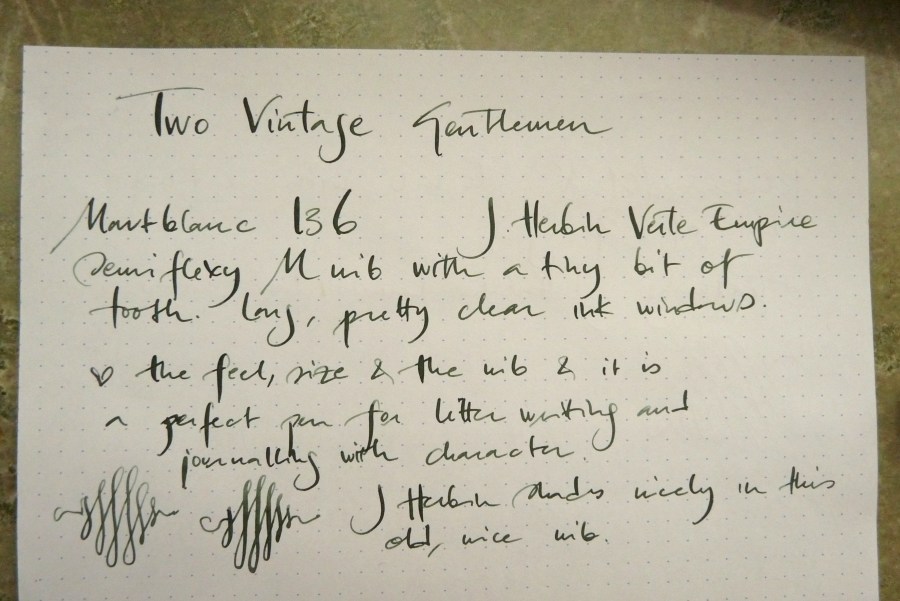 Two Vintage Gentlemen
Montblanc 136 J Herbin Verte Empire
semiflexy M nib with a tiny bit of
tooth. Long, pretty clear ink windows.
♡ the feel, size & the nib & it is
a perfect pen for letter writing and
journalling with character.
J Herbin shades nicely in this
old, nice nib.